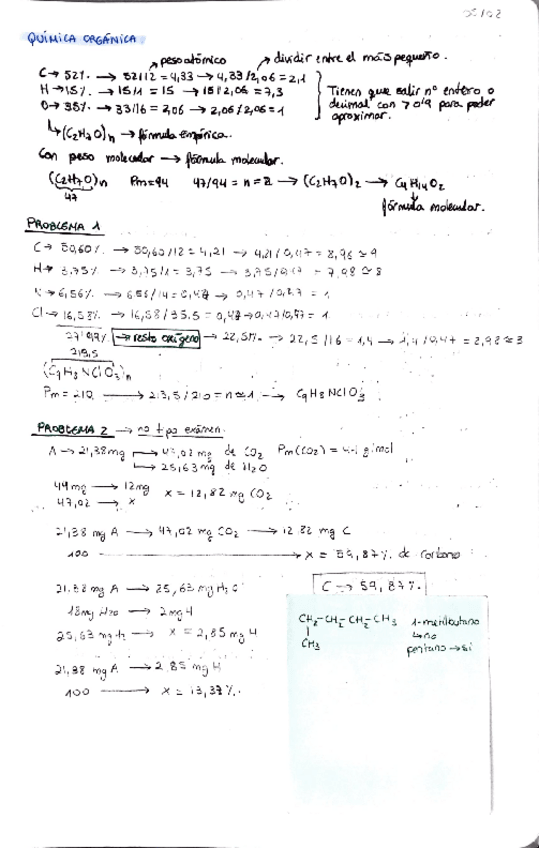 05/02
QUÍMICA ORGÁNICA
peso atómico dividir entre el más pequeño.
C → 52%. → 52/12 = 4,33 → 4,33/2,06 = 2,1
H → 15%. → 15/1 = 15 → 15/2,06 = 7,3
O → 33%. → 33/16 = 2,06 → 2,06/2,06 = 1
Tienen que salir nº entero o
decimal con > 0'9 para poder
aproximar.
↳ (C2H7O)n → fórmula empírica.
Con peso molecular → fórmula molecular.
(C2H7O)n Pm = 94 47/94 = n = 2 → (C2H7O)2 → C4H14O2
47
fórmula molecular.
PROBLEMA 1
C → 50,60%. → 50,60/12 = 4,21 → 4,21/0,47 = 8,96 ≃ 9
H → 3,75%. → 3,75/1 = 3,75 → 3,75/0,47 = 7,98 ≃ 8
N → 6,56%. → 6,56/14 = 0,47 → 0,47/0,47 = 1
Cl → 16,58%. → 16,58/35.5 = 0,47 → 0,47/0,47 = 1.
resto oxígeno → 22,5%. → 22,5/16 = 1,4 → 1,4/0,47 = 2,98 ≃ 3
213,5
(C9H8NClO3)n
Pm = 210 → 213,5/210 = n ≃ 1 → C9H8NClO3
PROBLEMA 2 → no tipo exámen.
A → 21,38 mg → 47,02 mg de CO2 Pm(CO2) = 44 g/mol
↳ 25,63 mg de H2O
44 mg → 12 mg x = 12,82 mg CO2
47,02 → x
21,38 mg A → 47,02 mg CO2 → 12.82 mg C
100 → x = 59,87%. de carbono
21.38 mg A → 25,63 mg H2O
C → 59,87%.
18 mg H2O → 2 mg H
25,63 mg H2 → x = 2,85 mg H
21,38 mg A → 2,85 mg H
100 → x = 13,33%.
CH2-CH2-CH2-CH3 1-metilbutano
↳ no
CH3 pentano → sí